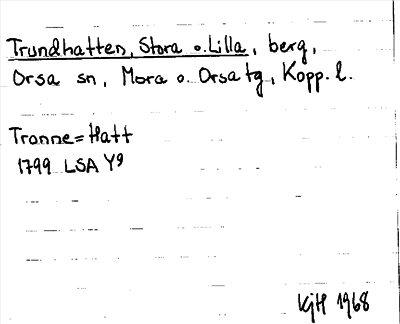 Trundhatten, Stora o. Lilla, berg,
Orsa sn, Mora o. Orsa tg, Kopp. l.
Tronne=Hatt
1799 LSA Y9
KjH 1968